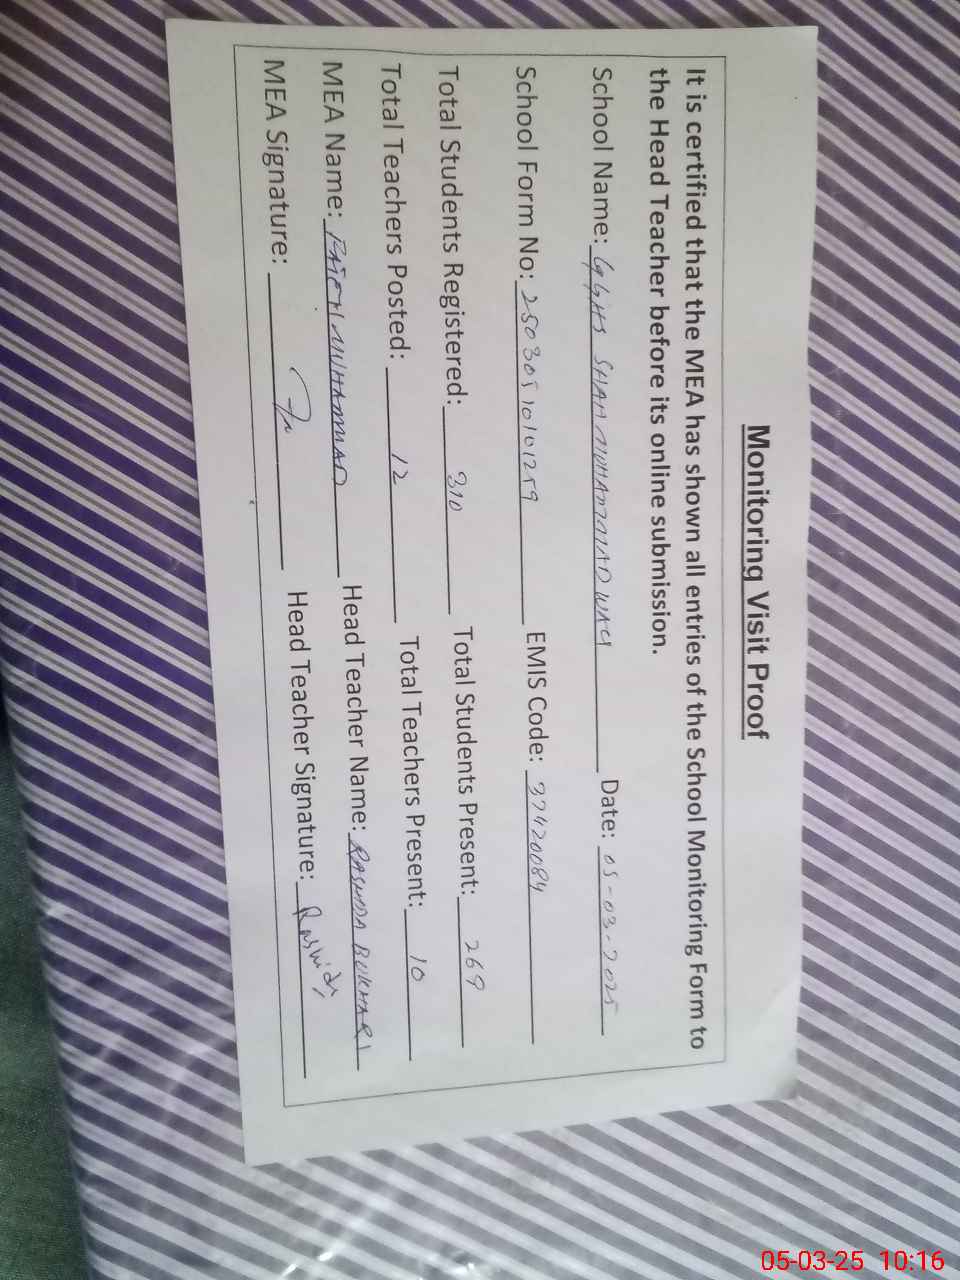 Monitoring Visit Proof
It is certified that the MEA has shown all entries of the School Monitoring Form to
the Head Teacher before its online submission.
School Name: GGHS SHAH MUHAMMAD WALI Date: 05-03-2025
School Form No: 25030510101259 EMIS Code: 37420084
Total Students Registered: 310 Total Students Present: 269
Total Teachers Posted: 12 Total Teachers Present: 10
MEA Name: MUHAMMAD Head Teacher Name: RASHIDA BUKHARI
MEA Signature: Head Teacher Signature: Rashida
05-03-25 10:16